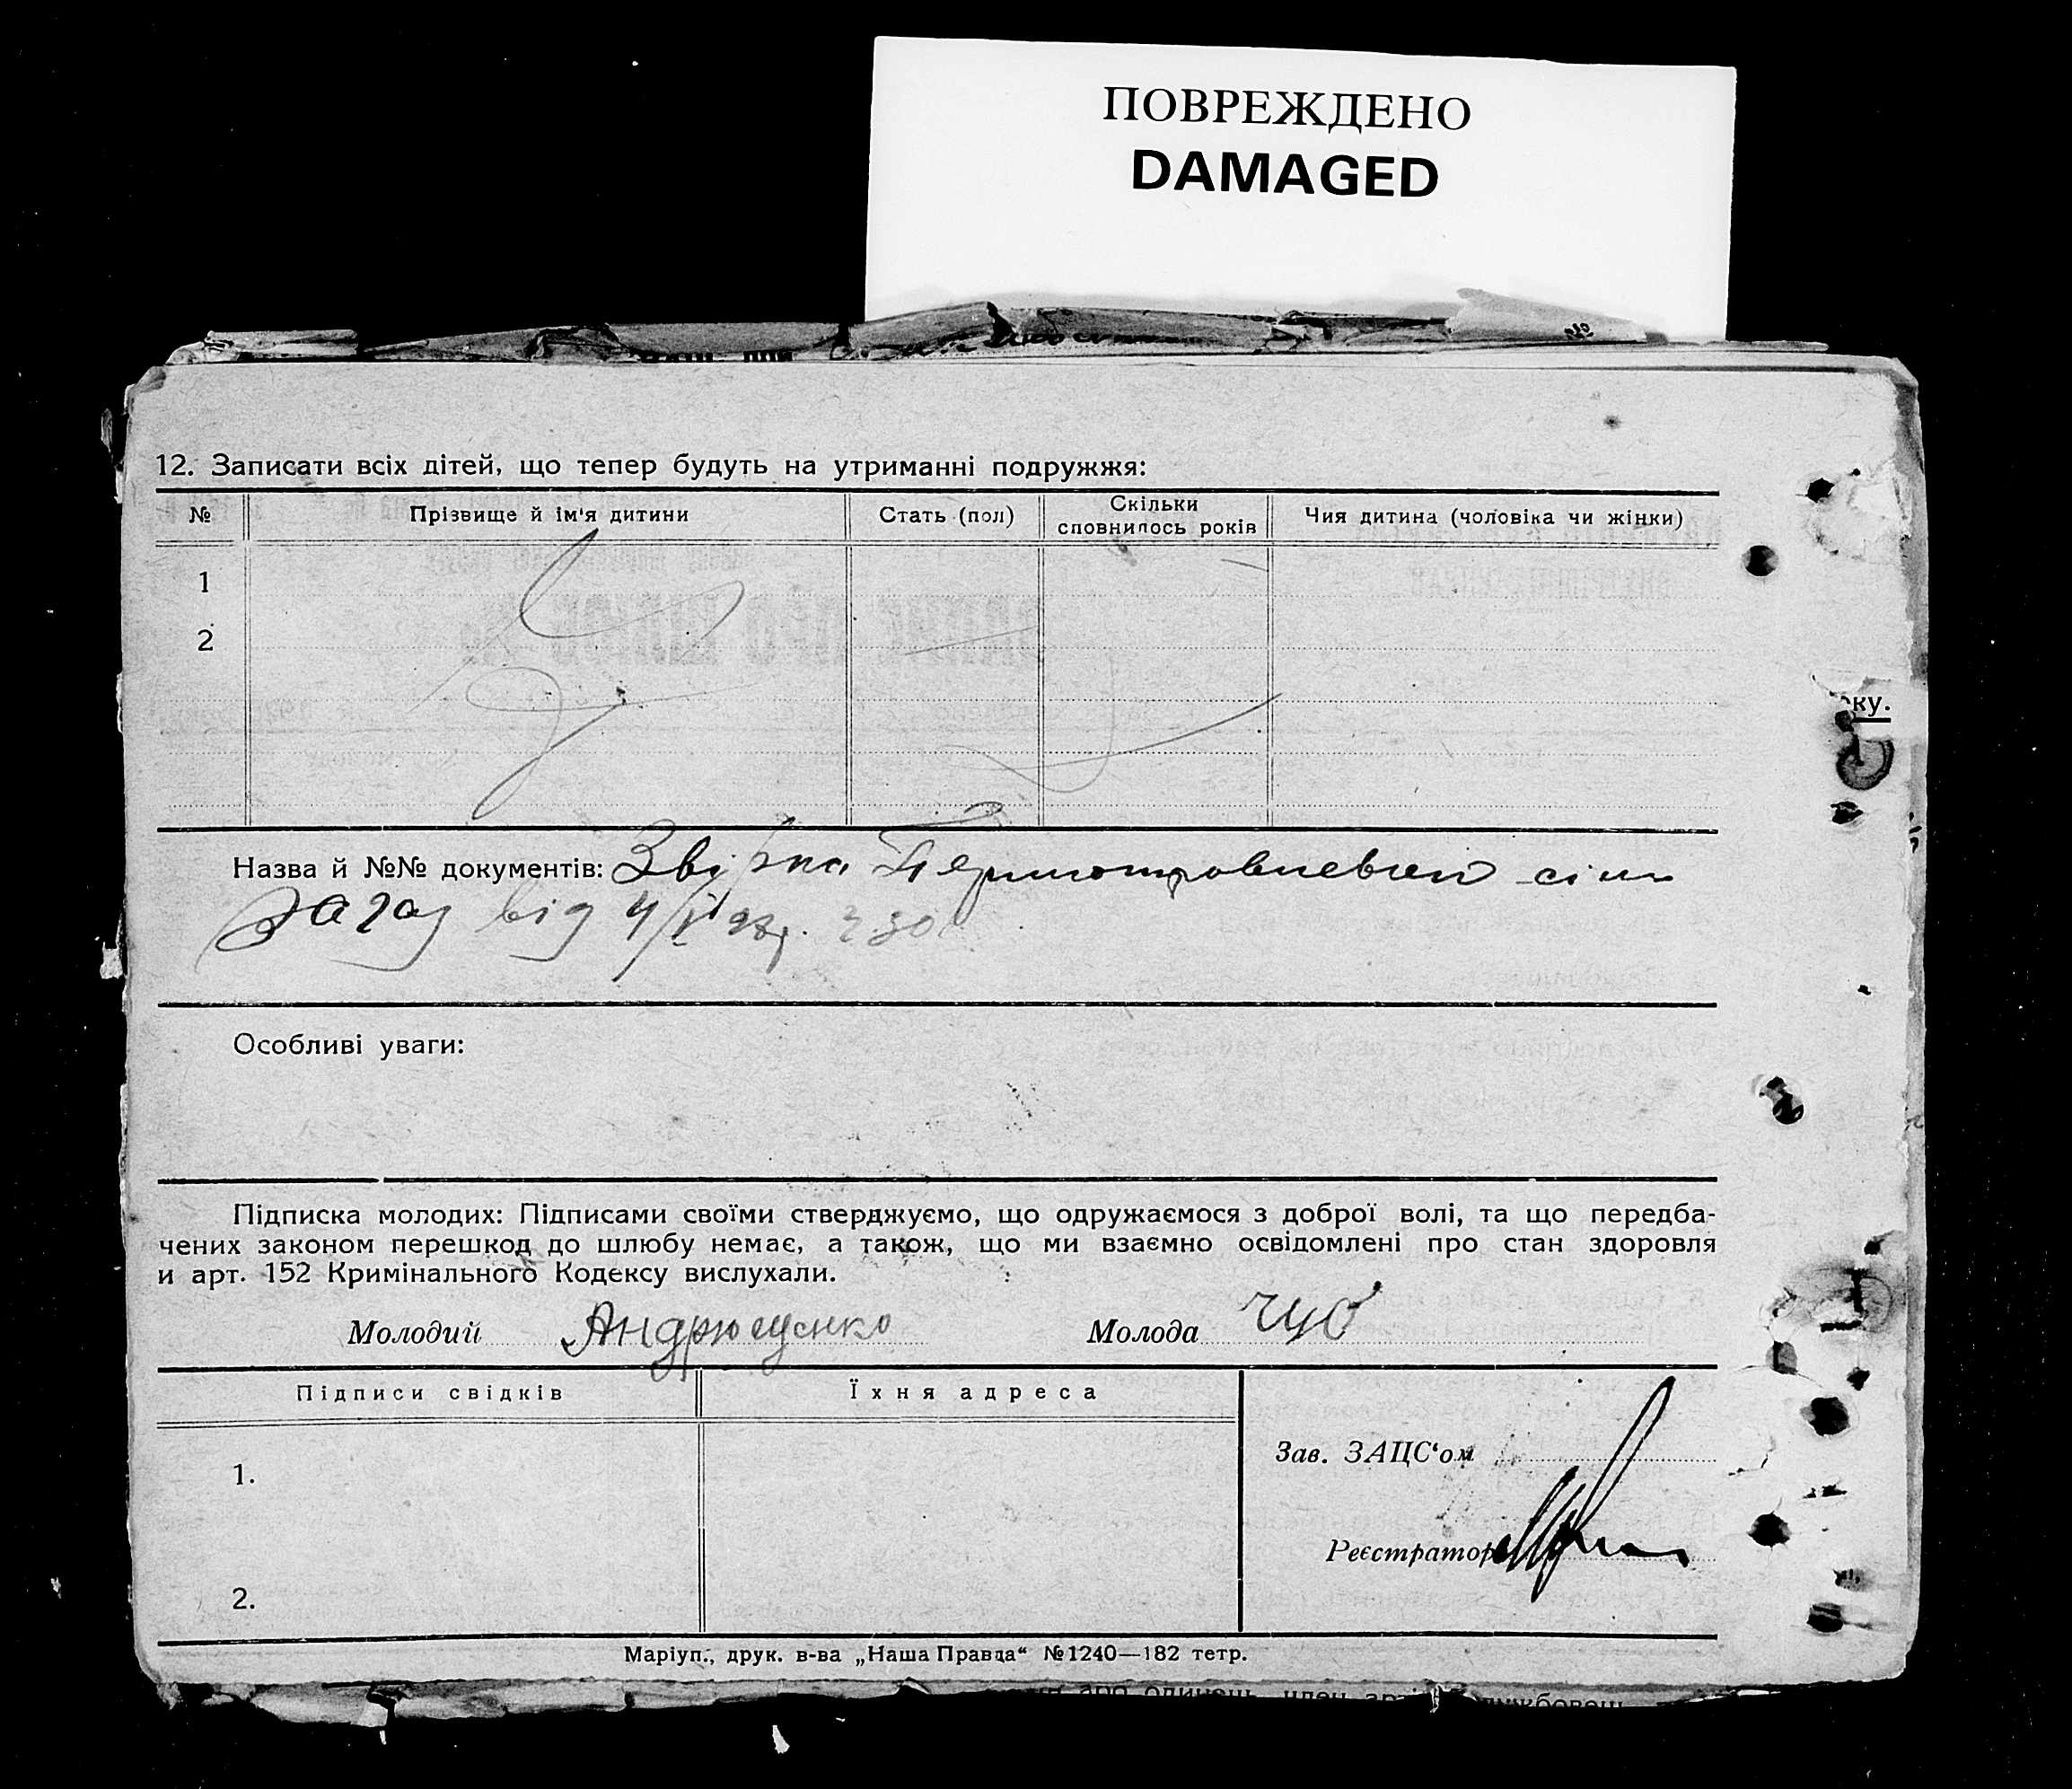 ПОВРЕЖДЕНО
DAMAGED
12. Записати всіх дітей, що тепер будуть на утриманні подружжя:
№ Прізвище й ім'я дитини Стать (пол) Скільки сповнилось років Чия дитина (чоловіка чи жінки)
1
2
ку.
Назва й №№ документів:
від 4/VI 28р. 230
Особливі уваги:
Підписка молодих: Підписами своїми стверджуємо, що одружаємося з доброї волі, та що передба-
чених законом перешкод до шлюбу немає, а також, що ми взаємно освідомлені про стан здоровля
и арт. 152 Кримінального Кодексу вислухали.
Молодий Андрющенко Молода Чуб
Підписи свідків Їхня адреса
Зав. ЗАЦС'ом
1.
Реєстратор
2.
Маріуп., друк. в-ва „Наша Правда“ №1240—182 тетр.